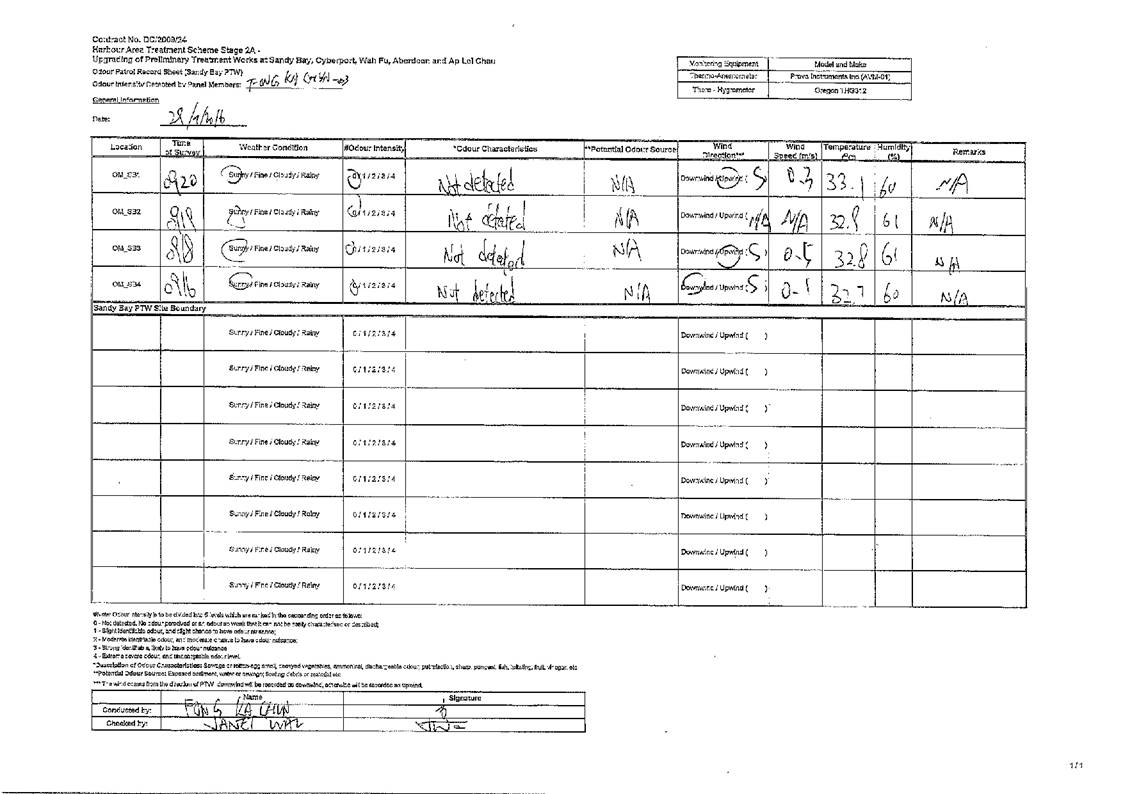 Contract No. DC/2009/24
Harbour Area Treatment Scheme Stage 2A -
Upgrading of Preliminary Treatment Works at Sandy Bay, Cyberport, Wah Fu, Aberdeen and Ap Lei Chau
Odour Patrol Record Sheet (Sandy Bay PTW)
Odour Intensity Detected by Panel Members: FONG KA CHUN
Monitoring Equipment Model and Make
Thermo-Anemometer Prova Instruments Inc (AVM-01)
Thermo - Hygrometer Oregon
General Information
Date: 28/7/2016
Location Time of Survey Weather Condition #Odour Intensity *Odour Characteristics **Potential Odour Source Wind Direction*** Wind Speed (m/s) Temperature Humidity (%) Remarks
OM_SB1 0920 Sunny / Fine / Cloudy / Rainy 0/1/2/3/4 Not detected N/A Downwind / Upwind ( S ) 0.3 33.1 60 N/A
OM_SB2 0919 Sunny / Fine / Cloudy / Rainy 0/1/2/3/4 Not detected N/A Downwind / Upwind ( N/A N/A 32.8 61 N/A
OM_SB3 0918 Sunny / Fine / Cloudy / Rainy 0/1/2/3/4 Not detected N/A Downwind / Upwind ( S ) 0.5 32.8 61 N/A
OM_SB4 0916 Sunny / Fine / Cloudy / Rainy 0/1/2/3/4 Not detected N/A Downwind / Upwind ( S ) 0.1 32.7 60 N/A
Sandy Bay PTW Site Boundary
Sunny / Fine / Cloudy / Rainy 0/1/2/3/4 Downwind / Upwind ( )
Sunny / Fine / Cloudy / Rainy 0/1/2/3/4 Downwind / Upwind ( )
Sunny / Fine / Cloudy / Rainy 0/1/2/3/4 Downwind / Upwind ( )
Sunny / Fine / Cloudy / Rainy 0/1/2/3/4 Downwind / Upwind ( )
Sunny / Fine / Cloudy / Rainy 0/1/2/3/4 Downwind / Upwind ( )
Sunny / Fine / Cloudy / Rainy 0/1/2/3/4 Downwind / Upwind ( )
Sunny / Fine / Cloudy / Rainy 0/1/2/3/4 Downwind / Upwind ( )
Sunny / Fine / Cloudy / Rainy 0/1/2/3/4 Downwind / Upwind ( )
Odour intensity is to be divided into 5 levels which are ranked in the descending order as follows:
0 - Not detected. No odour perceived or an odour so weak that it can not be easily characterised or described;
1 - Slight identifiable odour, and slight chance to have odour nuisance;
2 - Moderate identifiable odour, and moderate chance to have odour nuisance;
3 - Strong identifiable, likely to have odour nuisance
4 - Extreme severe odour, and unacceptable odour level.
*Description of Odour Characteristics: Sewage or rotten-egg smell, decayed vegetables, ammonical, dischargeable odour, putrefaction, sharp, pungent, fish, irritating, fruit, vinegar, etc
**Potential Odour Source: Exposed sediment, water or sewage; floating debris or material etc
*** The wind comes from the direction of PTW downwind will be recorded as downwind, otherwise will be recorded as upwind.
Name Signature
Conducted by: FONG KA CHUN
Checked by: JANET WAI
1/1